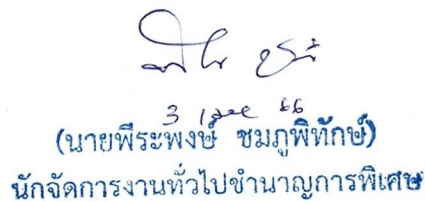 3 เมย 66
(นายพีระพงษ์ ชมภูพิทักษ์)
นักจัดการงานทั่วไปชำนาญการพิเศษ